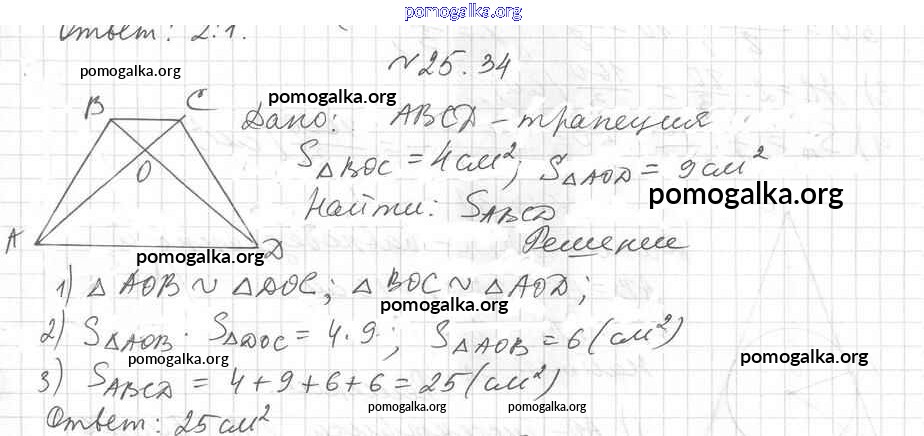 pomogalka.org
Ответ: 2:1.
№25.34
pomogalka.org
B C
pomogalka.org
Дано: ABCD - трапеция
O
S△BOC = 4см²; S△AOD = 9см²
pomogalka.org
Найти: SABCD
A D
Решение
pomogalka.org
1) △AOB ~ △DOC; △BOC ~ △AOD;
pomogalka.org
2) S△AOB · S△DOC = 4·9; S△AOB = 6(см²)
pomogalka.org pomogalka.org
3) SABCD = 4+9+6+6=25(см²)
pomogalka.org pomogalka.org
Ответ: 25см²